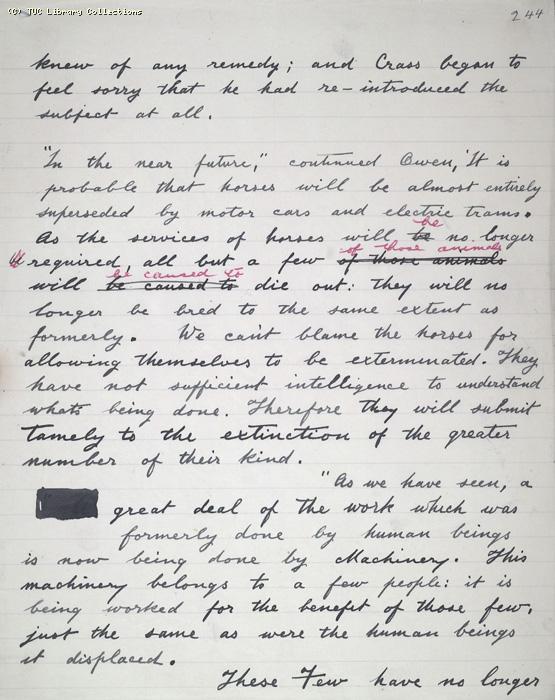 (C) TUC Library Collections
244
knew of any remedy; and Crass began to
feel sorry that he had re-introduced the
subject at all.
"In the near future," continued Owen, 'It is
probable that horses will be almost entirely
superseded by motor cars and electric trams.
be
As the services of horses will be no longer
of those animals
required, all but a few of those animals
be caused to
will be caused to die out: they will no
longer be bred to the same extent as
formerly. We can't blame the horses for
allowing themselves to be exterminated. They
have not sufficient intelligence to understand
whats being done. Therefore they will submit
tamely to the extinction of the greater
number of their kind.
"As we have seen, a
great deal of the work which was
formerly done by human beings
is now being done by Machinery. This
machinery belongs to a few people: it is
being worked for the benefit of those few,
just the same as were the human beings
it displaced.
These Few have no longer